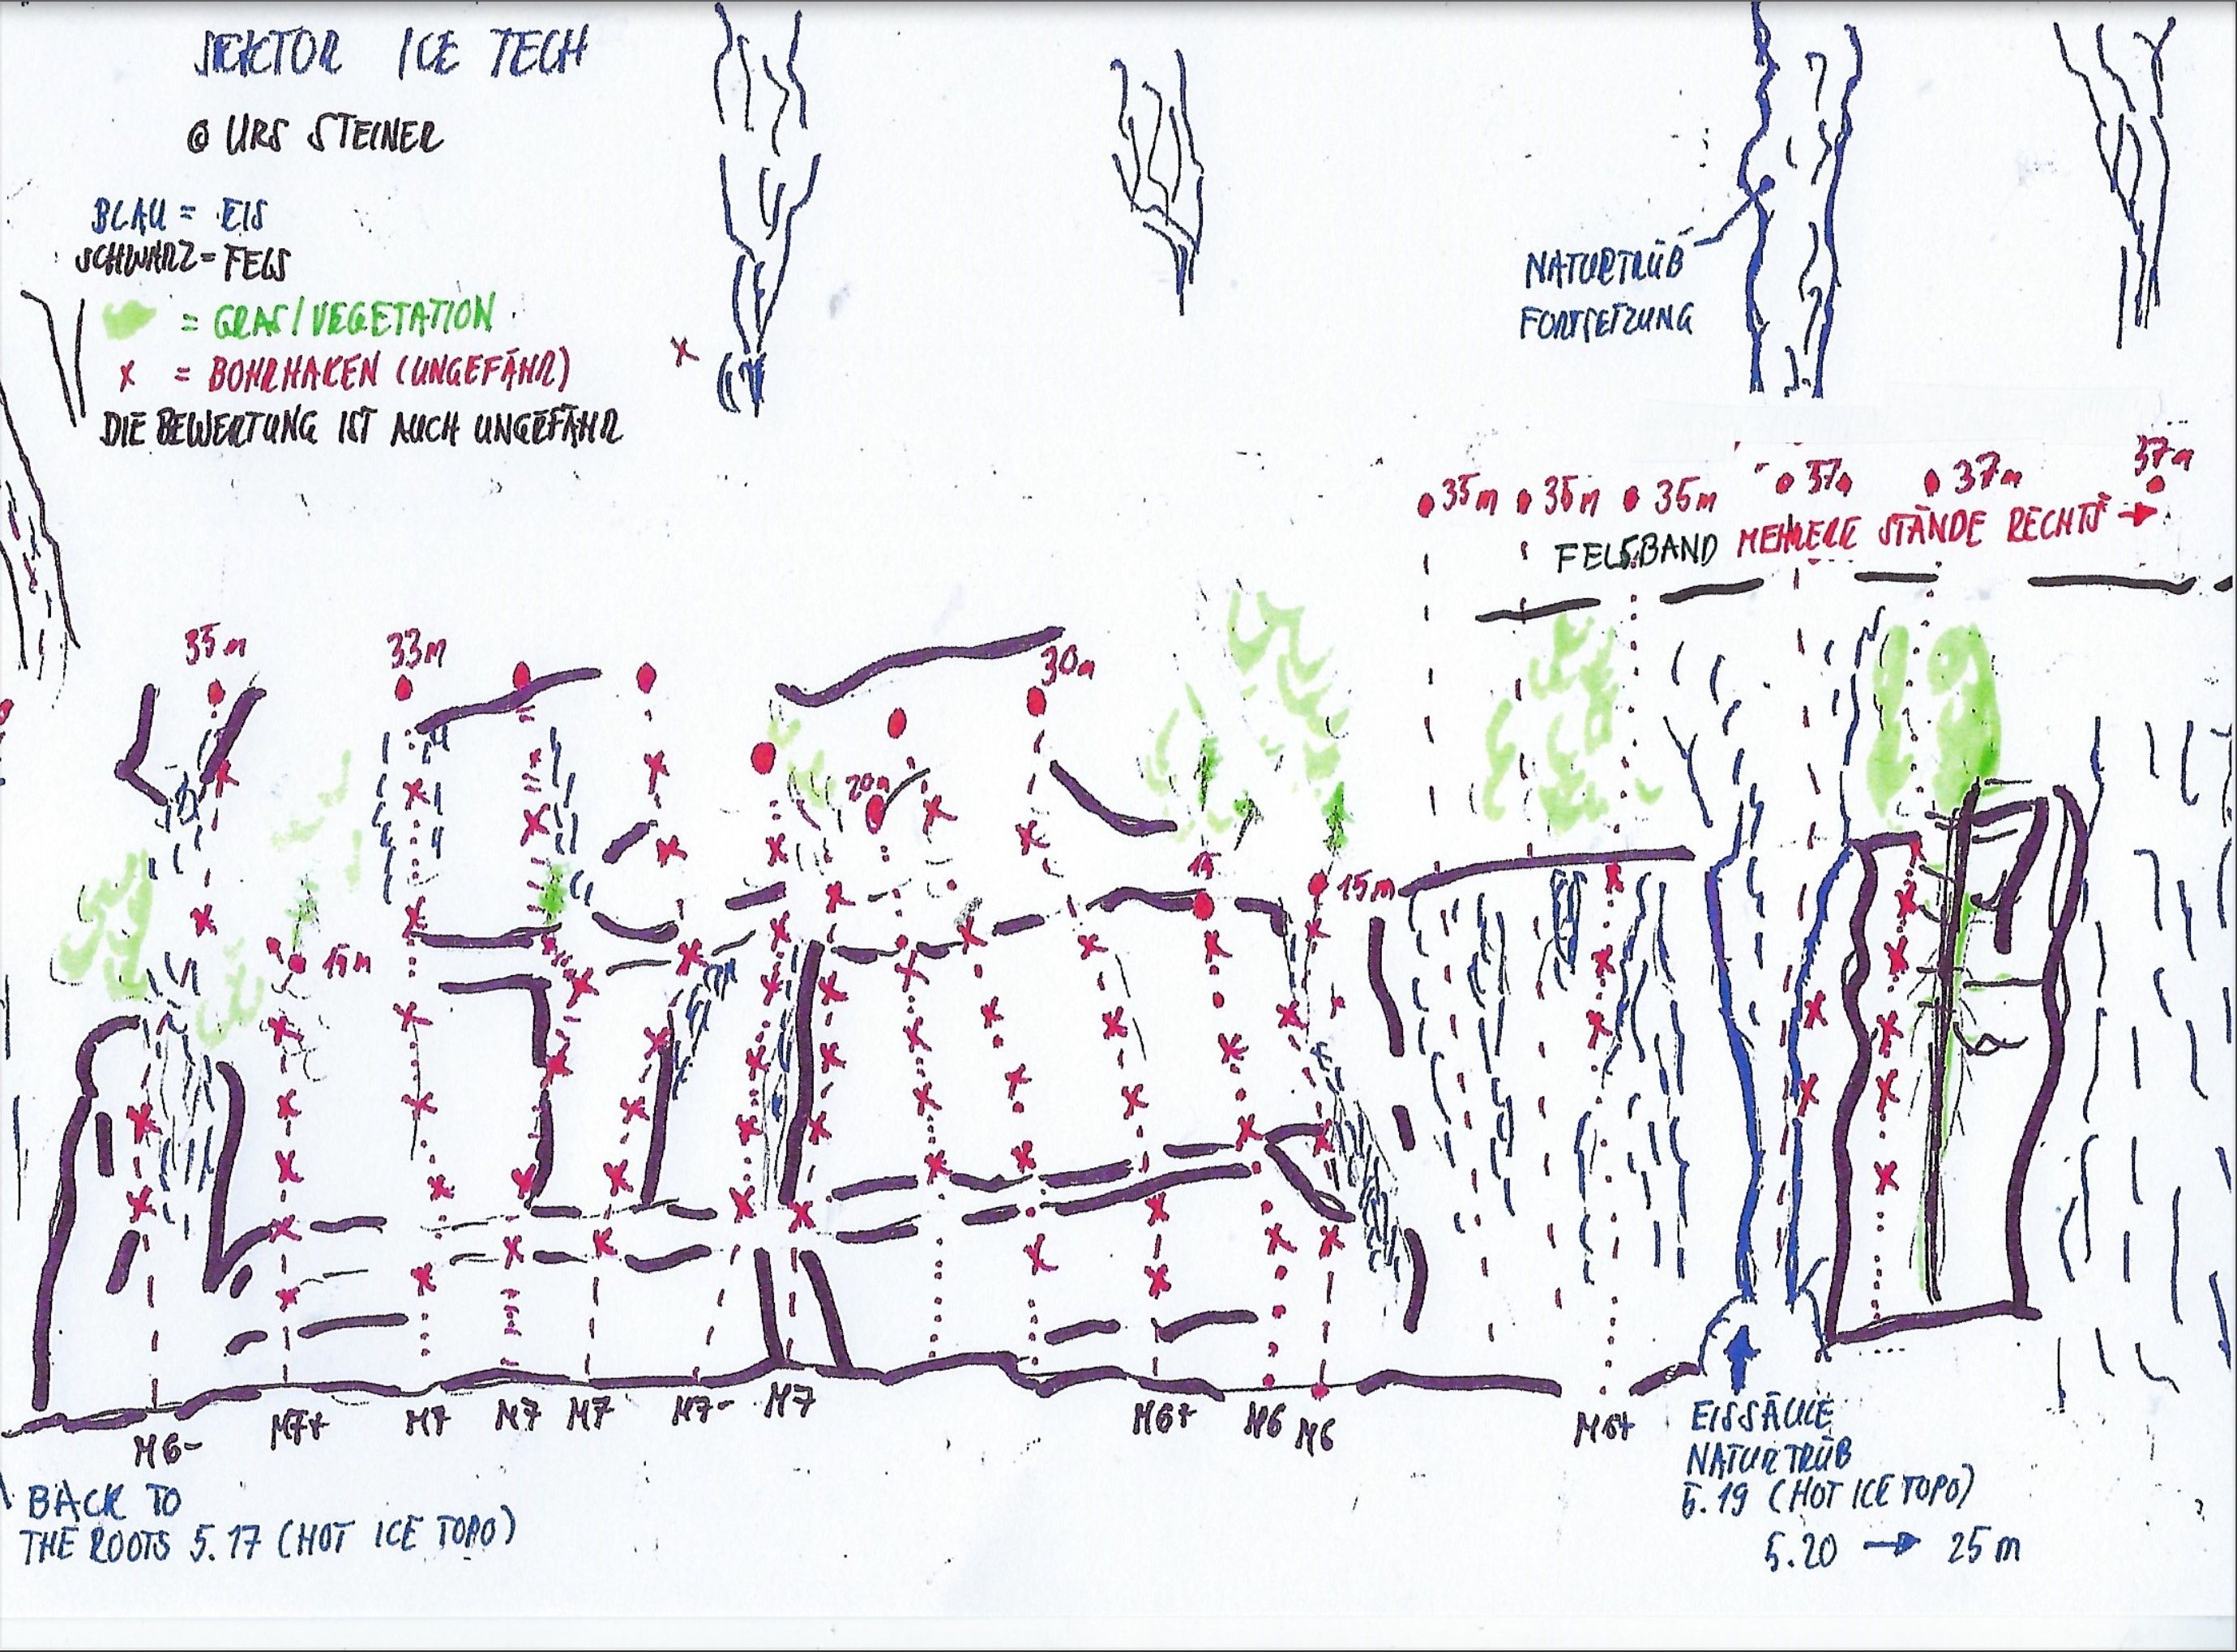 SEKTOR ICE TECH
@ URS STEINER
BLAU = EIS
SCHWARZ = FELS
= GRAS/VEGETATION
x = BOHRHAKEN (UNGEFÄHR)
DIE BEWERTUNG IST AUCH UNGEFÄHR
NATURTRÜB
FORTSETZUNG
35m 35m 35m 37m 37m 37m
FELSBAND MEHRERE STÄNDE RECHTS →
35m 33m 30m
20m
15 15m
15m
M6- M7+ M7 M7 M7 M7- M7 M6+ M6 M6 M6+
BACK TO
THE ROOTS 5.17 (HOT ICE TOPO)
EISSÄULE
NATURTRÜB
5.19 (HOT ICE TOPO)
5.20 → 25m